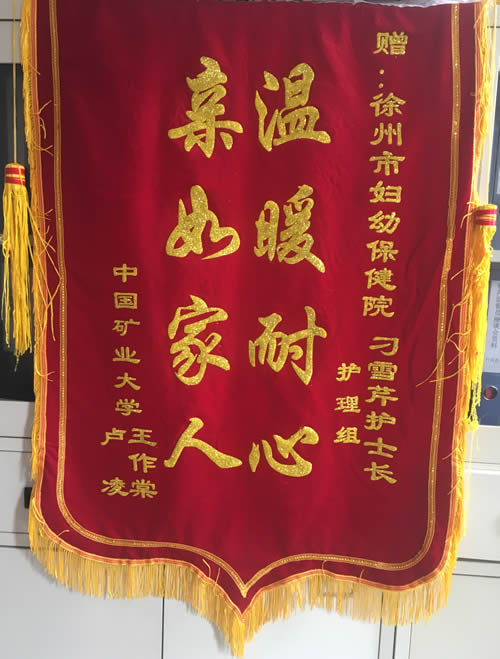 赠:徐州市妇幼保健院 刁雪芹护士长
护理组
温暖耐心
亲如家人
中国矿业大学 王作棠
卢凌